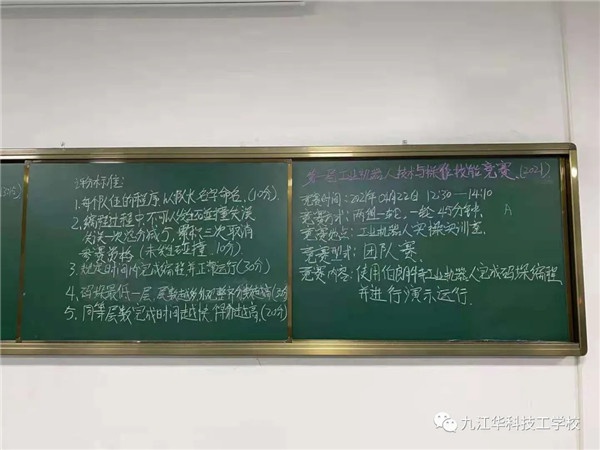 评分标准:
1. 每个队伍的程序以队长名字命名.(10分).
2. 编程过程中不可以发生碰撞失误
失误一次总分减5, 累积三次取消
参赛资格 (未发生碰撞 10分)
3. 规定时间内完成编程并正常运行(30分)
4. 码垛最低一层, 层数越多
5. 同等层数完成时间越快 得分越高.(20分)
第一届工业机器人技术与操作技能竞赛.(2021)
竞赛时间: 2021年04月22日 12:30—14:10
竞赛方式: 两组一轮, 一轮45分钟.
竞赛地点: 工业机器人实操实训室.
竞赛型式: 团队赛.
竞赛内容: 使用伯朗特工业机器人完成码垛编程
并进行演示运行.
A
九江华科技工学校